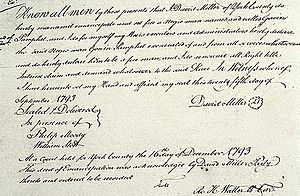 Know all men by these presents that I David Miller of York County do
hereby manumit emancipate and set free a Negro man named and called Gowan
Pamphlet, and I do for myself my Heirs executors and administrators hereby declare
the said Negro man Gowan Pamphlet exonerated of and from all
and do hereby declare him to be a free man, and
claim and demand whatsoever to the said In Witness whereof
I have hereunto set my Hand and affixed my seal this twenty fifth day of
September 1793
David Miller
Sealed & Delivered
In presence of
Philip Moody
William
At a Court held for York County the 16th day of December 1793
This deed of Emancipation was acknowledged by David Miller
thereto and ordered to be recorded